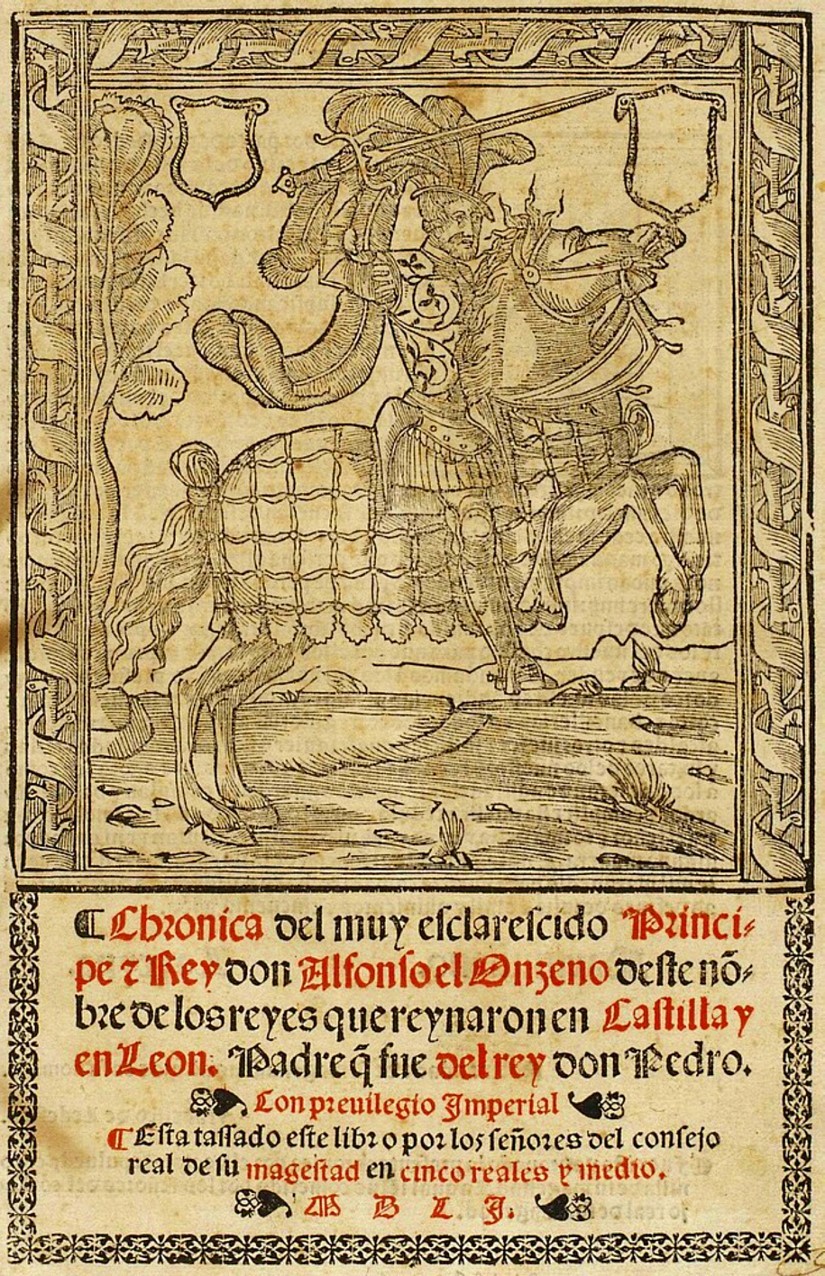 ¶ Chronica del muy esclarescido Princi-
pe ⁊ Rey don Alfonso el Onzeno deste nõ-
bre de los reyes que reynaron en Castilla y
en Leon. Padre q̃ fue del rey don Pedro.
Con preuilegio Imperial
¶ Esta tassado este libro por los señores del consejo
real de su magestad en cinco reales y medio.
M D L I.